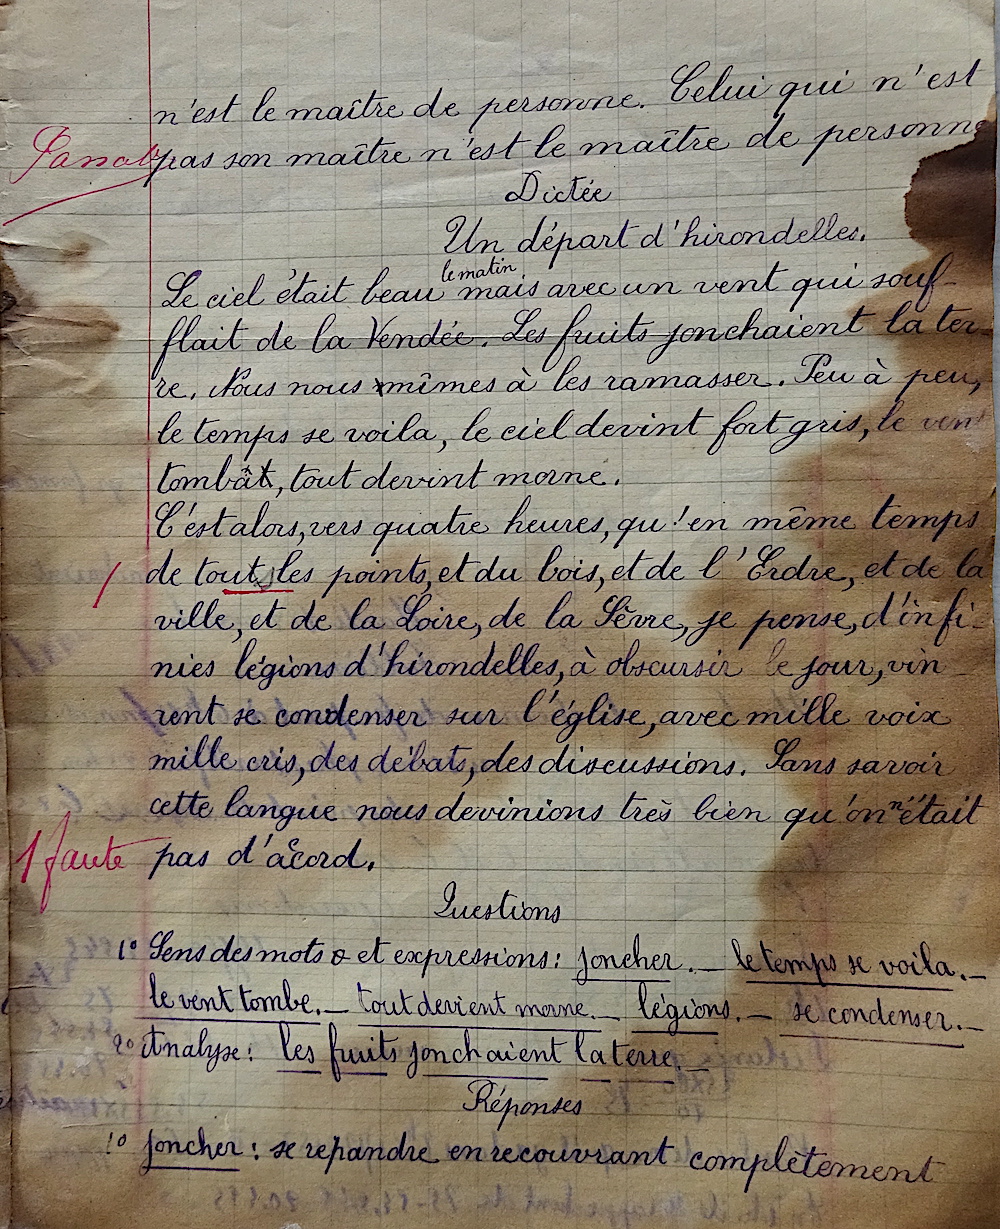 n'est le maître de personne. Celui qui n'est
pas son maître n'est le maître de personne
Dictée
Un départ d'hirondelles.
le matin
Le ciel était beau mais avec un vent qui souf-
flait de la Vendée. Les fruits jonchaient la ter-
re. Nous nous mîmes à les ramasser. Peu à peu,
le temps se voila, le ciel devint fort gris, le vent
tombât, tout devint morne.
C'est alors, vers quatre heures, qu'en même temps
/ de tout les points, et du bois, et de l'Erdre, et de la
ville, et de la Loire, de la Sèvre, je pense, d'infi-
nies légions d'hirondelles, à obscursir le jour, vin-
rent se condenser sur l'église, avec mille voix
mille cris, des débats, des discussions. Sans savoir
cette langue nous devinions très bien qu'on n'était
1 faute pas d'accord.
Questions
1° Sens des mots et expressions : joncher. — le temps se voila. —
le vent tombe. — tout devient morne. — légions. — se condenser. —
2° Analyse : les fruits jonchaient la terre. —
Réponses
1° joncher : se repandre en recouvrant complètement